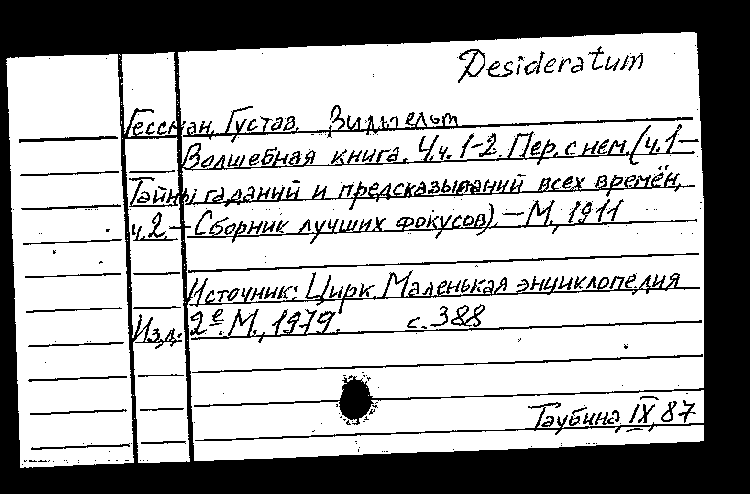 Desideratum
Гессман, Густав. Вильгельм
Волшебная книга. Ч.ч. 1-2. Пер. с нем. (ч.1-
Тайны гаданий и предсказываний всех времён,
ч.2.-Сборник лучших фокусов).-М., 1911
Источник: Цирк. Маленькая энциклопедия
Изд. 2е. М., 1979. с. 388
Таубина, IX, 87